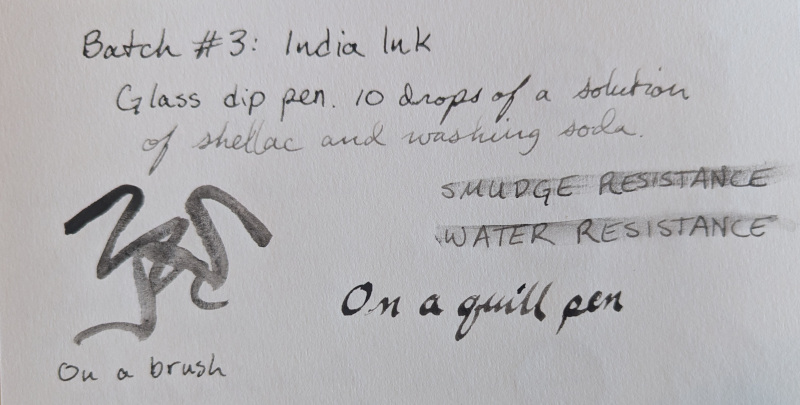 Batch #3: India Ink
Glass dip pen. 10 drops of a solution
of shellac and washing soda.
SMUDGE RESISTANCE
WATER RESISTANCE
On a quill pen
On a brush